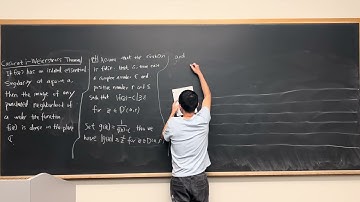 Casorati-Weierstrass Theorem
If f(z) has an isolated essential
singularity at a point a,
then the image of any
punctured neighborhood of
a under the function
f(z) is dense in the plane
ℂ
Assume that the theorem
is false: that is, there exist
a complex number c and
positive number r and ε
such that |f(z)-c|≥ε
for z ∈ D'(a,r)
Set g(z) = 1/(f(z)-c), then we
have |g(z)| ≤ 1/ε for z ∈ D'(a,r)
and